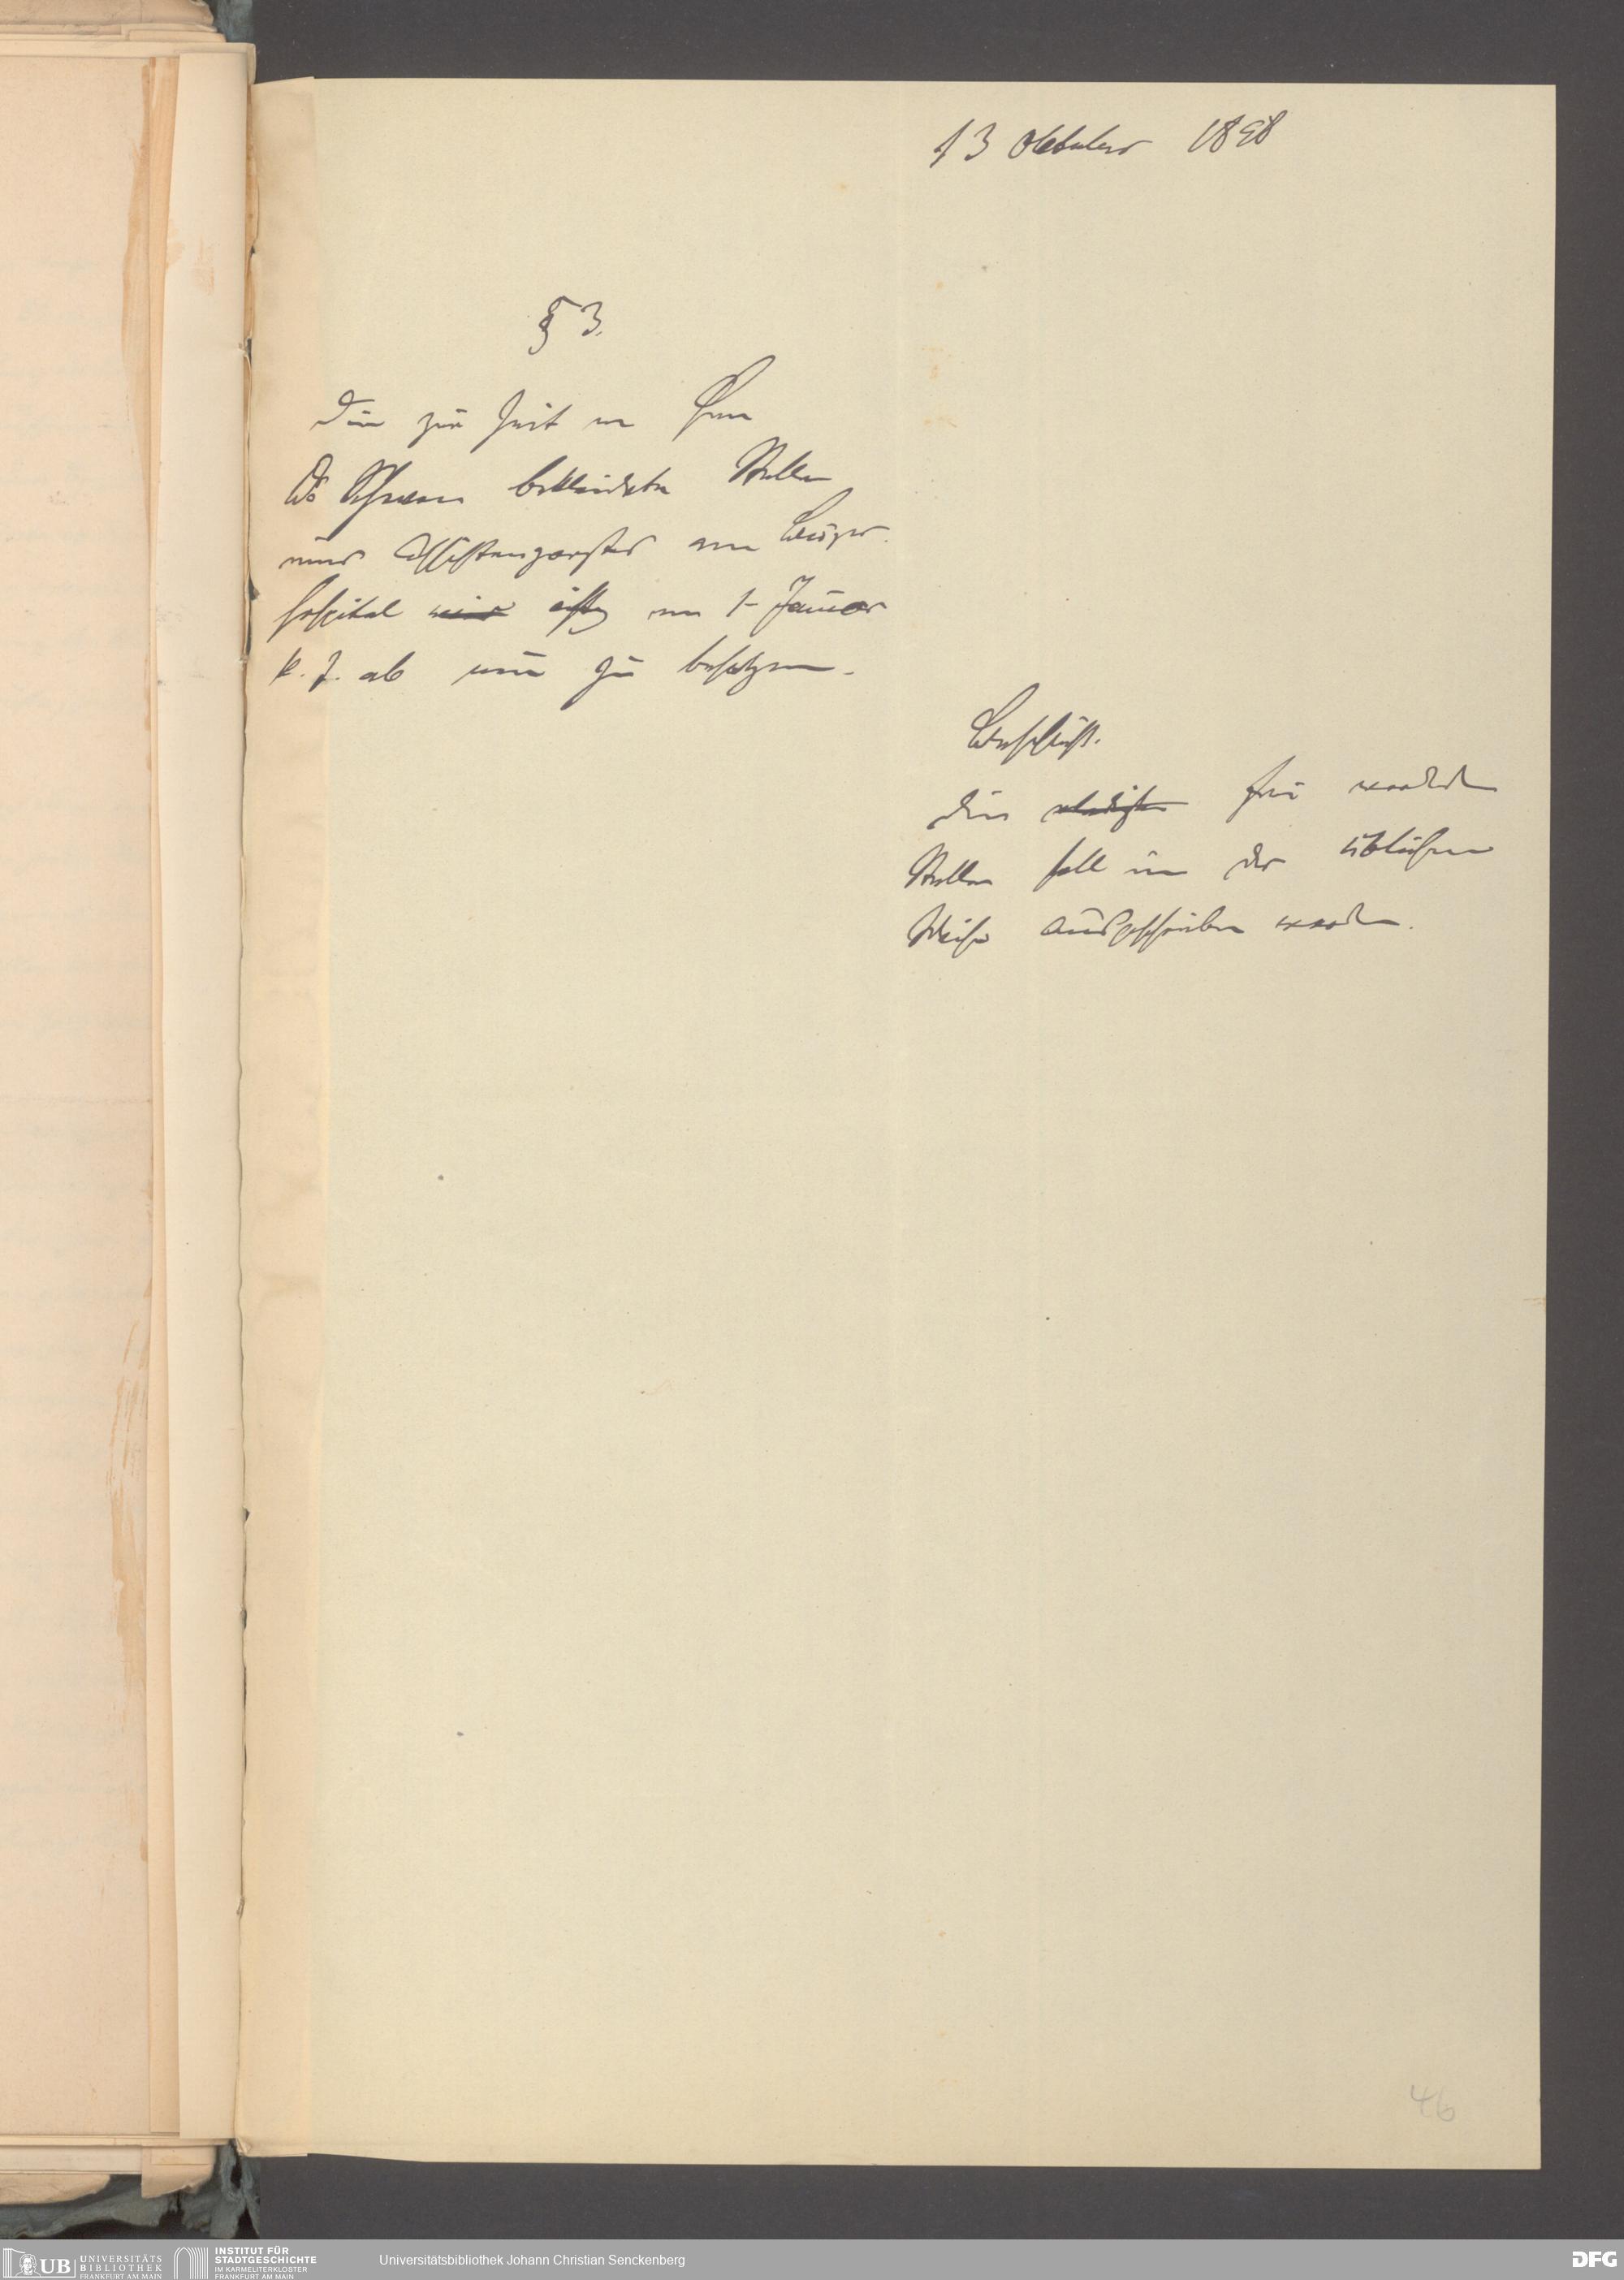 13 Oktober 1898
§ 3.
Die zur Zeit von Herrn
Dr bekleidete Stelle
eines Assistenzarztes am Bürger-
hospital wird ist vom 1. Januar
k. J. ab neu zu besetzen.
Beschluß.
Die erledigte frei werdende
Stelle soll in der üblichen
Weise ausgeschrieben werden.
46
UB UNIVERSITÄTS
BIBLIOTHEK
FRANKFURT AM MAIN
INSTITUT FÜR
STADTGESCHICHTE
IM KARMELITERKLOSTER
FRANKFURT AM MAIN
Universitätsbibliothek Johann Christian Senckenberg
DFG